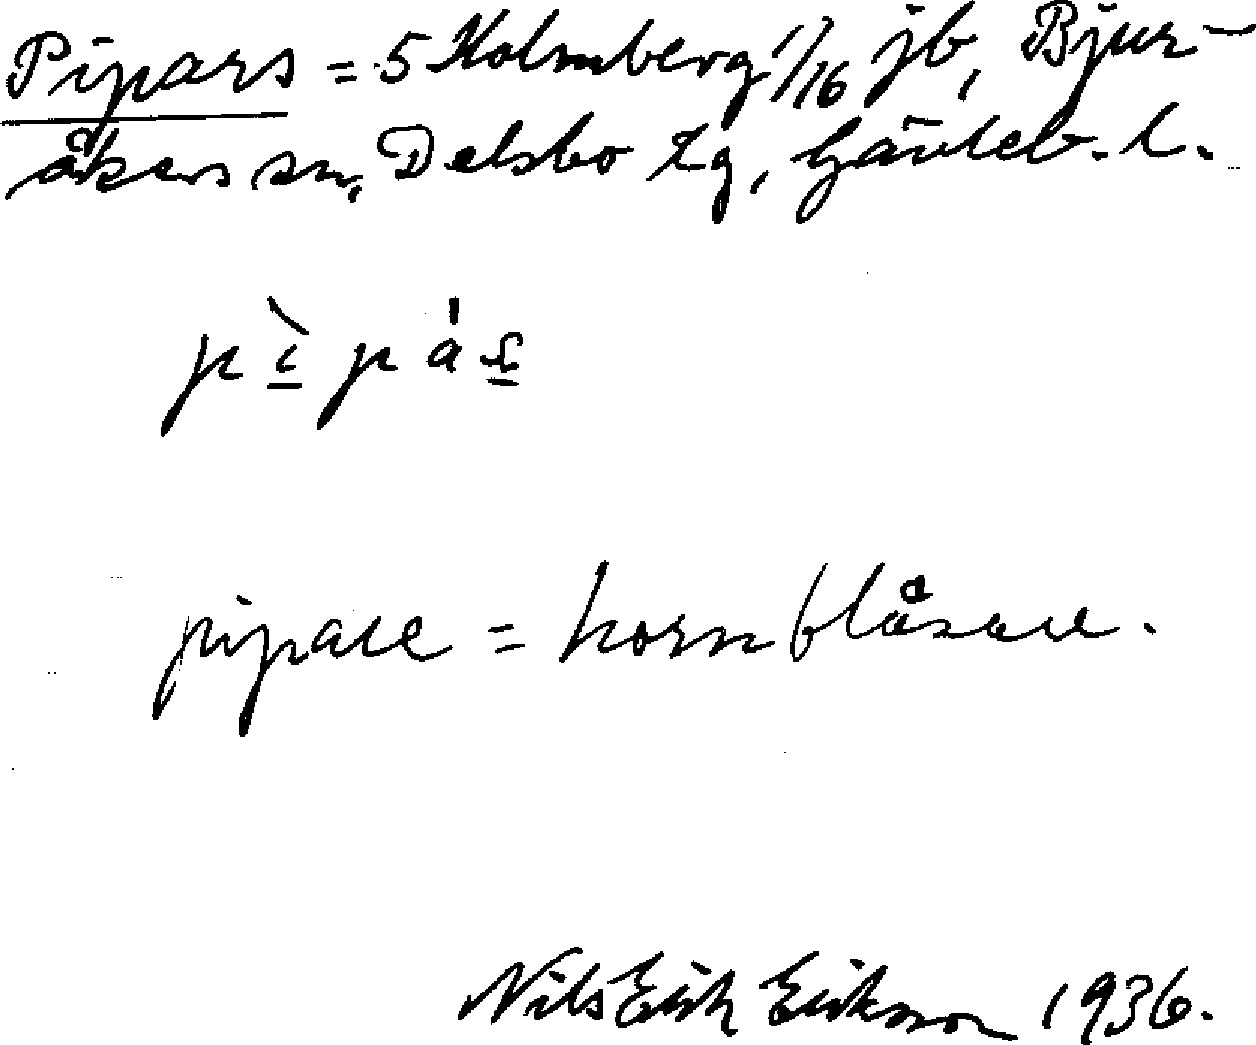 Pipars = 5 Holmberg 1/16 jb, Bjur-
åkers sn, Delsbo tg, Gävleb. l.
pipare = hornblåsare.
Nils Erik Erikson 1936.